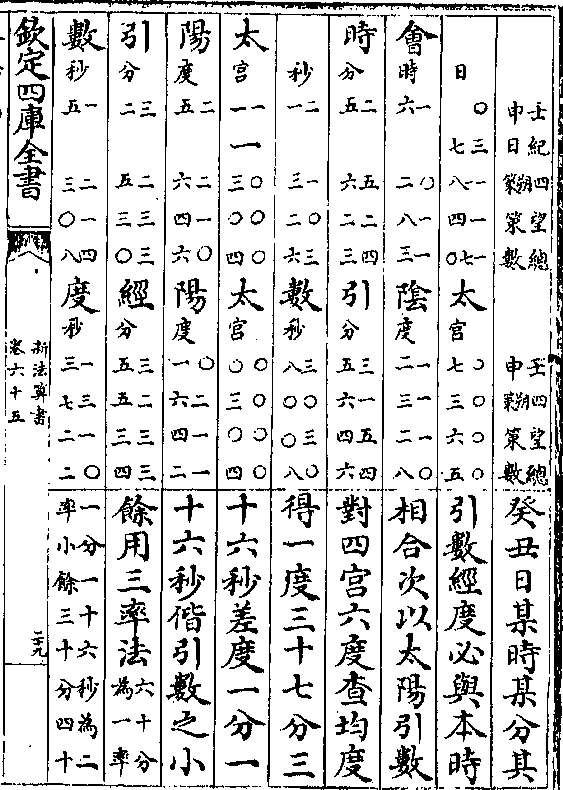 壬申 紀日 四朔策 望策 總數 壬申 四朔策 望策 總數 癸丑日某時某分其
日 〇 三七 一一八 一四 一七〇 太宮 〇七 〇三 〇六 〇五 引數經度必與本時
會時 一六 〇二 一八 一三 陰度 一二 一三 一二 〇八 相合次以太陽引數
時分 二五 五六 二二 四三 引分 三五 一六 五四 四六 對四宮六度查均度
秒 二一 一三 〇二 三六 數秒 三八 〇〇 三〇 〇八 得一度三十七分三
太宮 一一 一 〇三 〇〇 〇四 太宮 〇〇 〇三 〇〇 〇四 十六秒差度一分一
陽度 二五 二六 一四 〇六 陽度 〇一 二六 一四 一二 十六秒偕引數之小
引分 三二 二五 三三 三〇 經分 三五 二五 三三 三四 餘用三率法六十分為一率
數秒 一五 二三 一〇 四八 度秒 一三 三七 一二 〇二 一分一十六秒為二率小餘三十分四十
欽定四庫全書 新法算書 卷六十五 二十九